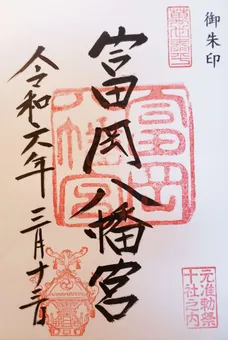 御朱印
富岡八幡宮
富岡
八幡宮
元准勅祭
十社之内
令和六年 三月十三日